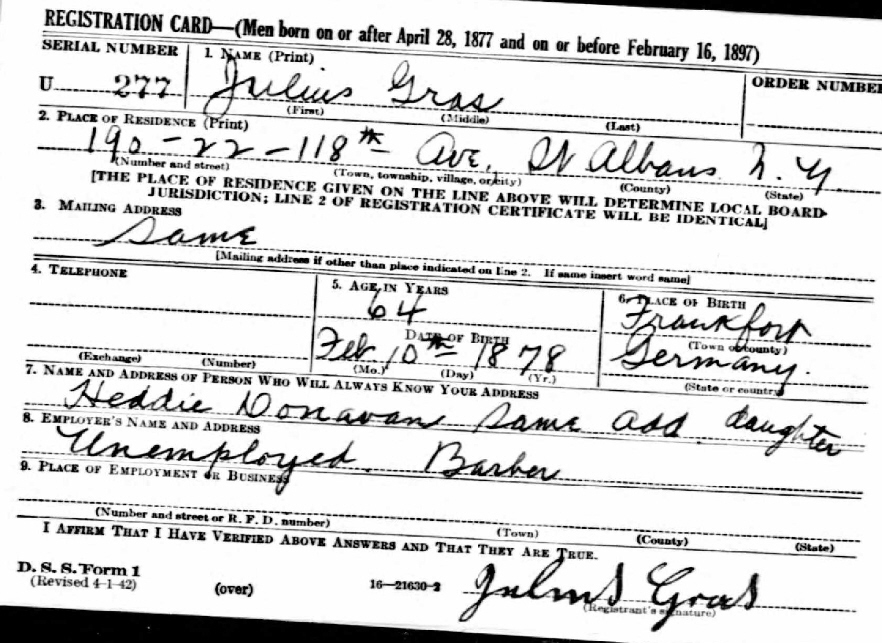 REGISTRATION CARD—(Men born on or after April 28, 1877 and on or before February 16, 1897)
SERIAL NUMBER 1. NAME (Print) ORDER NUMBER
U 277 Julius Gras
(First) (Middle) (Last)
2. PLACE OF RESIDENCE (Print)
190-22-118th Ave, St Albans N.Y.
(Number and street) (Town, township, village, or city) (County) (State)
[THE PLACE OF RESIDENCE GIVEN ON THE LINE ABOVE WILL DETERMINE LOCAL BOARD
JURISDICTION; LINE 2 OF REGISTRATION CERTIFICATE WILL BE IDENTICAL]
3. MAILING ADDRESS
Same
[Mailing address if other than place indicated on line 2. If same insert word same]
4. TELEPHONE 5. AGE IN YEARS 6. PLACE OF BIRTH
64 Frankfort
DATE OF BIRTH (Town or county)
Feb 10th 1878 Germany.
(Exchange) (Number) (Mo.) (Day) (Yr.) (State or country)
7. NAME AND ADDRESS OF PERSON WHO WILL ALWAYS KNOW YOUR ADDRESS
Heddie Donavan same add. daughter
8. EMPLOYER'S NAME AND ADDRESS
Unemployed. Barber
9. PLACE OF EMPLOYMENT OR BUSINESS
(Number and street or R. F. D. number) (Town) (County) (State)
I AFFIRM THAT I HAVE VERIFIED ABOVE ANSWERS AND THAT THEY ARE TRUE.
D. S. S. Form 1
(Revised 4-1-42) (over) 16—21630-2 Julius Gras
(Registrant's signature)